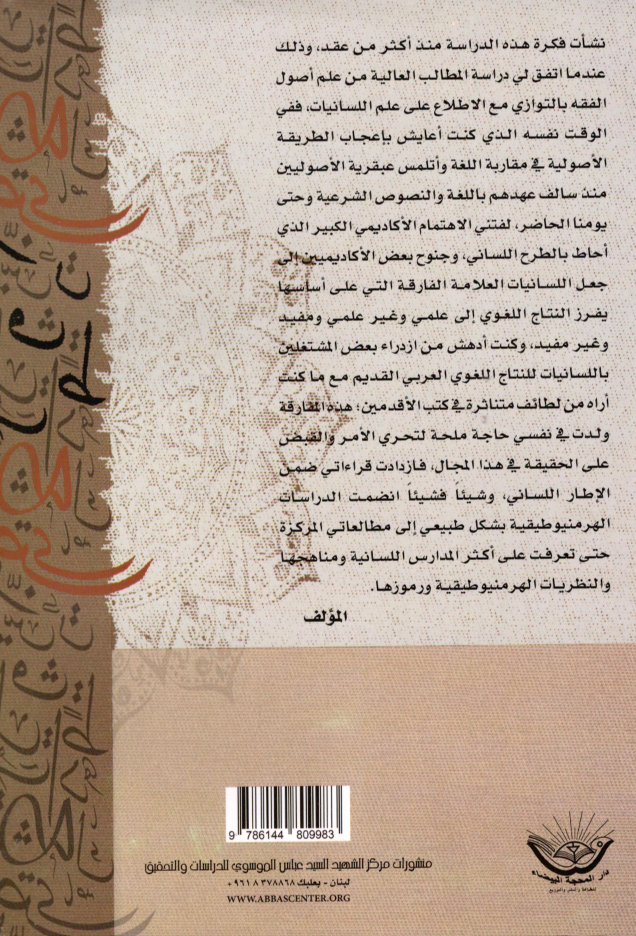 نشأت فكرة هذه الدراسة منذ أكثر من عقد، وذلك
عندما اتفق لي دراسة المطالب العالية من علم أصول
الفقه بالتوازي مع الاطلاع على علم اللسانيات، ففي
الوقت نفسه الذي كنت أعايش بإعجاب الطريقة
الأصولية في مقاربة اللغة وأتلمس عبقرية الأصوليين
منذ سالف عهدهم باللغة والنصوص الشرعية وحتى
يومنا الحاضر، لفتني الاهتمام الأكاديمي الكبير الذي
أحاط بالطرح اللساني، وجنوح بعض الأكاديميين إلى
جعل اللسانيات العلامة الفارقة التي على أساسها
يفرز النتاج اللغوي إلى علمي وغير علمي ومفيد
وغير مفيد، وكنت أدهش من ازدراء بعض المشتغلين
باللسانيات للنتاج اللغوي العربي القديم مع ما كنت
أراه من لطائف متناثرة في كتب الأقدمين؛ هذه المفارقة
ولدت في نفسي حاجة ملحة لتحري الأمر والقبض
على الحقيقة في هذا المجال، فازدادت قراءاتي ضمن
الإطار اللساني، وشيئاً فشيئاً انضمت الدراسات
الهرمنيوطيقية بشكل طبيعي إلى مطالعاتي المركزة
حتى تعرفت على أكثر المدارس اللسانية ومناهجها
والنظريات الهرمنيوطيقية ورموزها.
المؤلف
9 786144 809983
منشورات مركز الشهيد السيد عباس الموسوي للدراسات والتحقيق
لبنان - بعلبك ٣٧٨٨٦٨ ٨ ٩٦١ +
WWW.ABBASCENTER.ORG
دار المحجة البيضاء
للطباعة والنشر والتوزيع